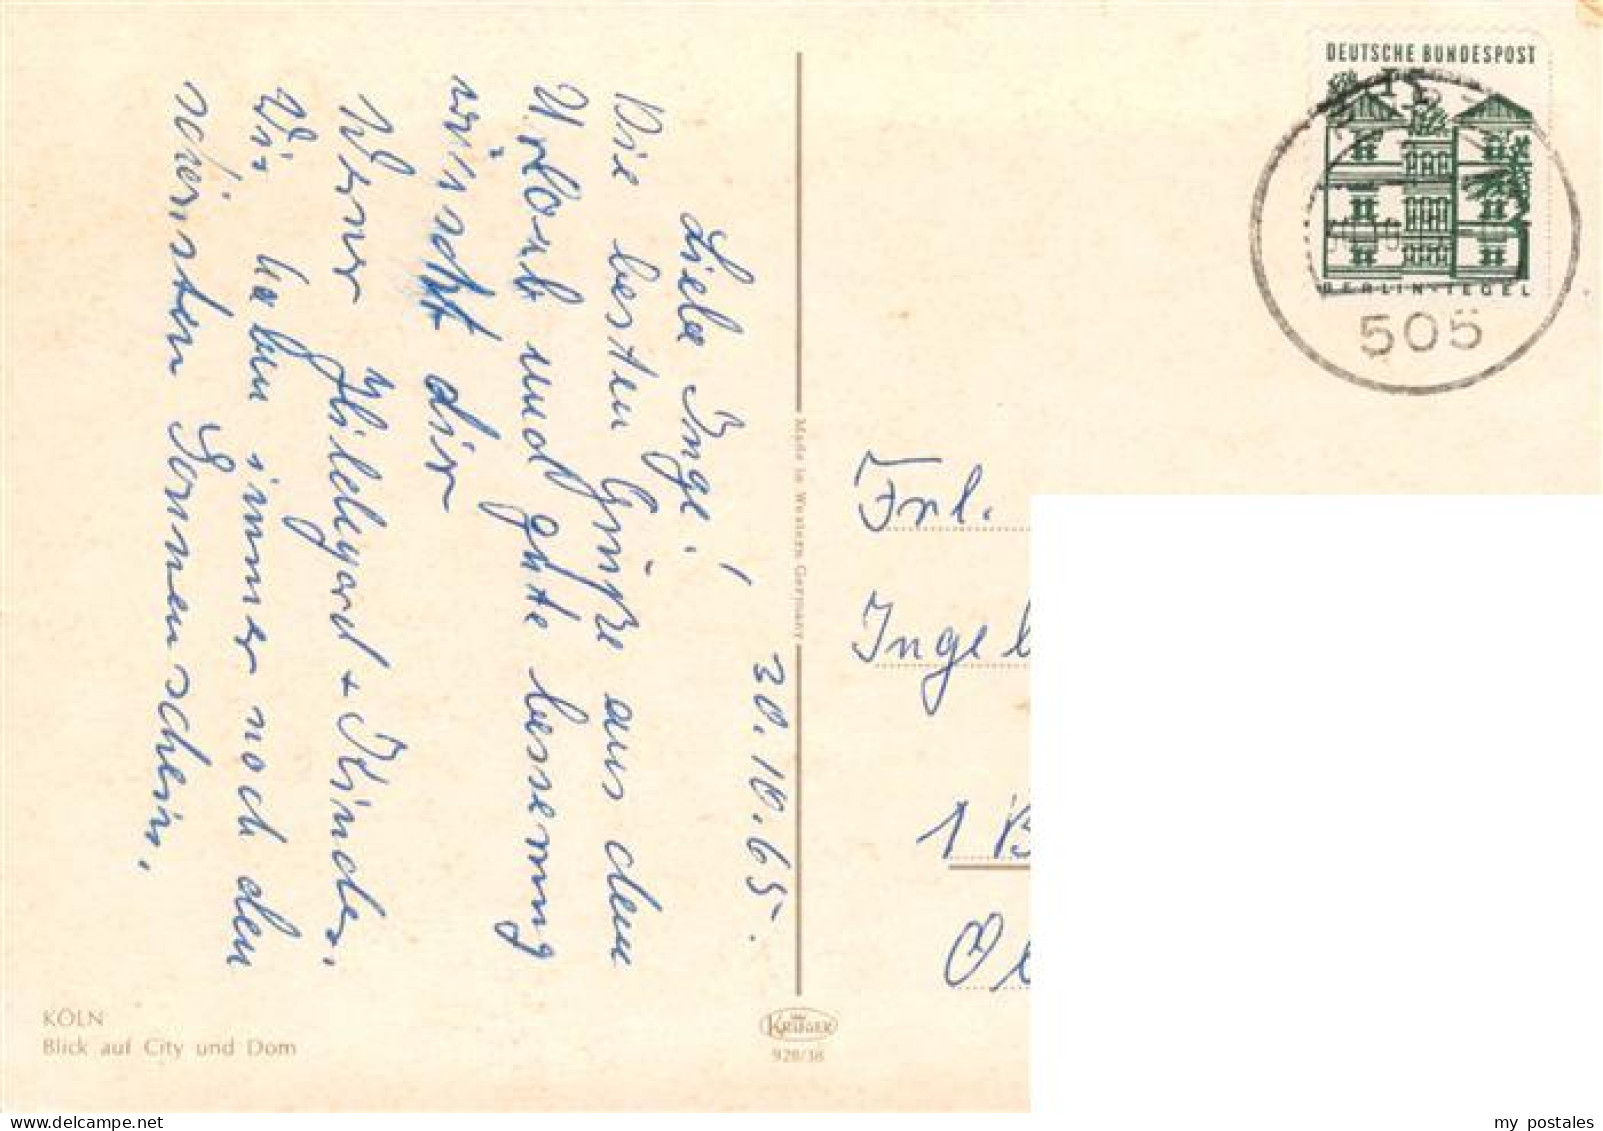 30.10.65.
Liebe Inge!
Die besten Grüße aus dem
Urlaub und gute besserung
wünscht dir
Werner Hildegard + Kinder.
Wir haben immer noch den
schönsten Sonnenschein.
KÖLN
Blick auf City und Dom
Made in Western Germany
KRÜGER
928/38
DEUTSCHE BUNDESPOST
15
BERLIN-TEGEL
505
Frl.
Ingeb
1 B
my postales